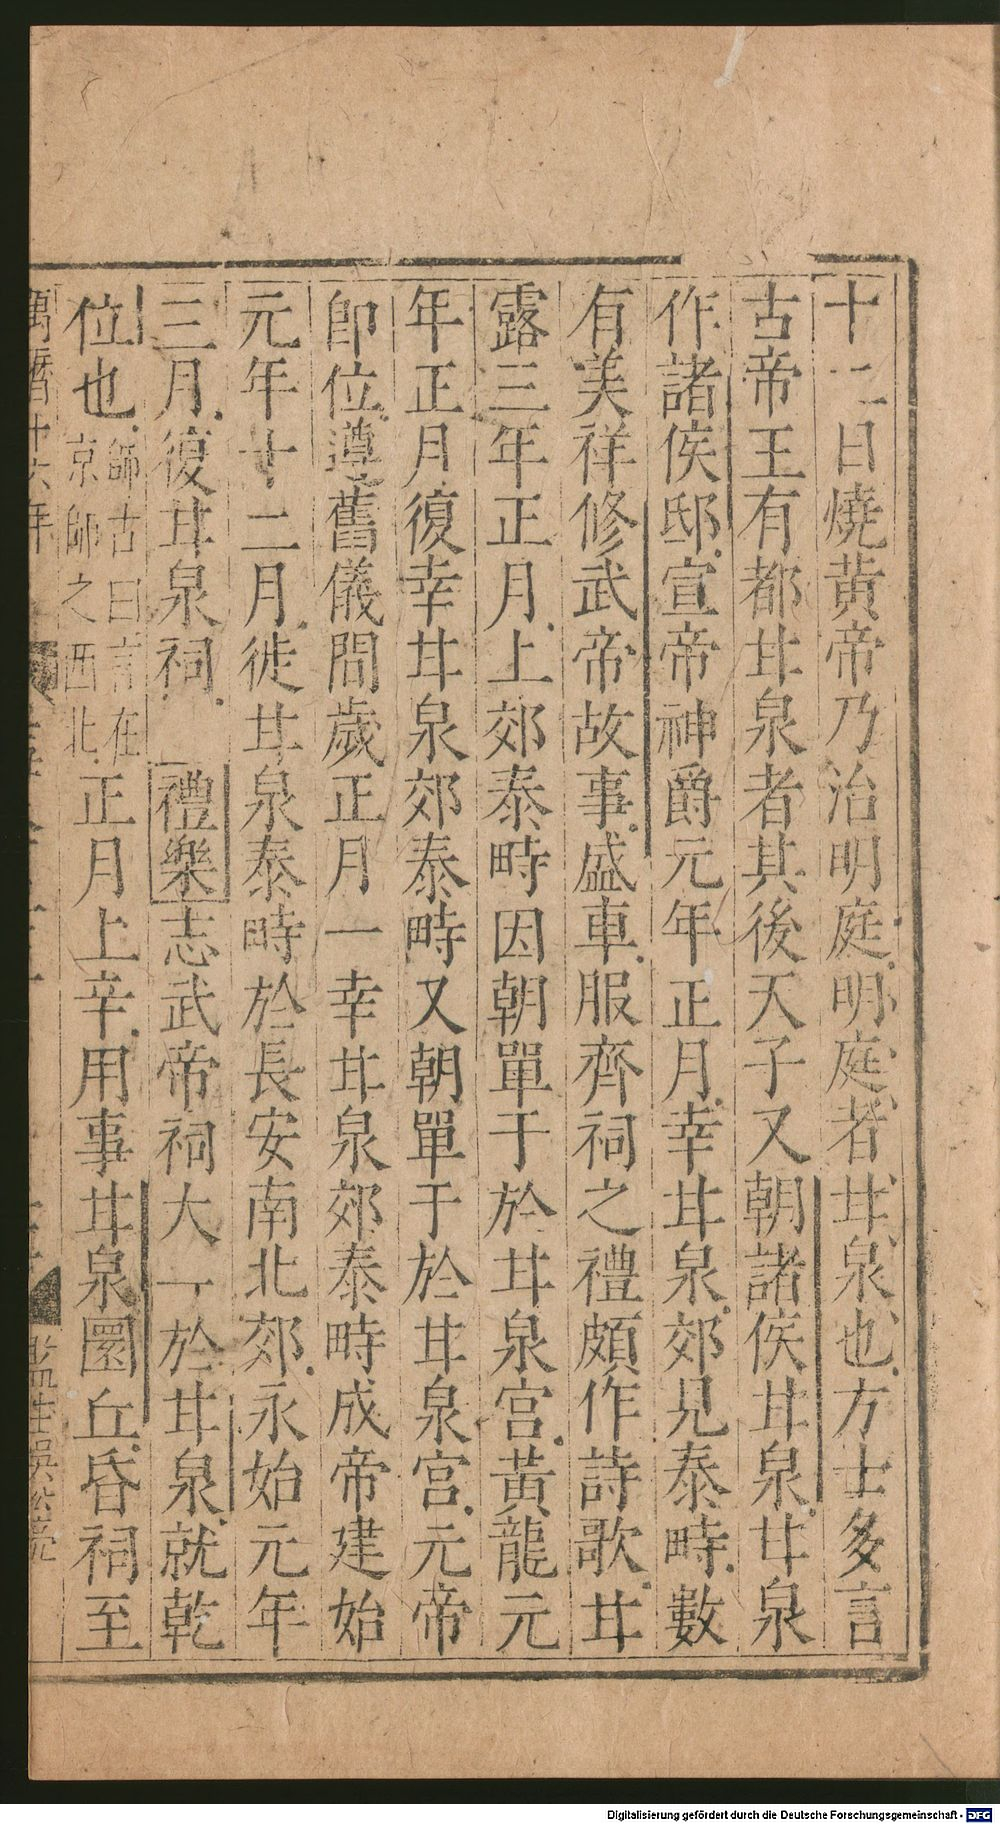 十二日燒黃帝乃治明庭明庭者甘泉也方士多言
古帝王有都甘泉者其後天子又朝諸侯甘泉甘泉
作諸侯邸宣帝神爵元年正月幸甘泉郊見泰畤數
有美祥修武帝故事盛車服齊祠之禮頗作詩歌甘
露三年正月上郊泰畤因朝單于於甘泉宮黃龍元
年正月復幸甘泉郊泰畤又朝單于於甘泉宮元帝
即位遵舊儀間歲正月一幸甘泉郊泰畤成帝建始
元年十二月徙甘泉泰畤於長安南北郊永始元年
三月復甘泉祠 禮樂志武帝祠大一於甘泉就乾
位也師古曰言在京師之西北正月上辛用事甘泉圜丘昏祠至
萬曆十六年
監生吳
Digitalisierung gefördert durch die Deutsche Forschungsgemeinschaft - DFG